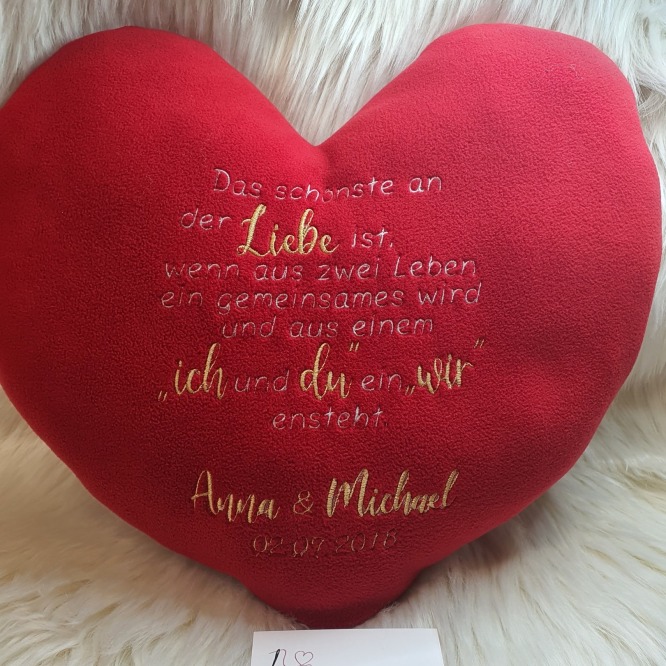 Das schönste an
der Liebe ist,
wenn aus zwei Leben
ein gemeinsames wird
und aus einem
„ich und du" ein „wir"
ensteht.
Anna & Michael